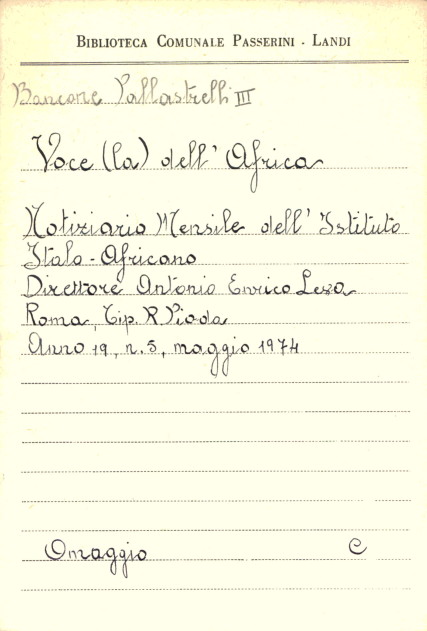 BIBLIOTECA COMUNALE PASSERINI - LANDI
Bancone Pallastrelli III
Voce (la) dell' Africa
Notiziario Mensile dell' Istituto
Italo - Africano
Direttore Antonio Enrico Leva
Roma, Tip. R. Pioda
Anno 19, n. 5, maggio 1974
Omaggio C